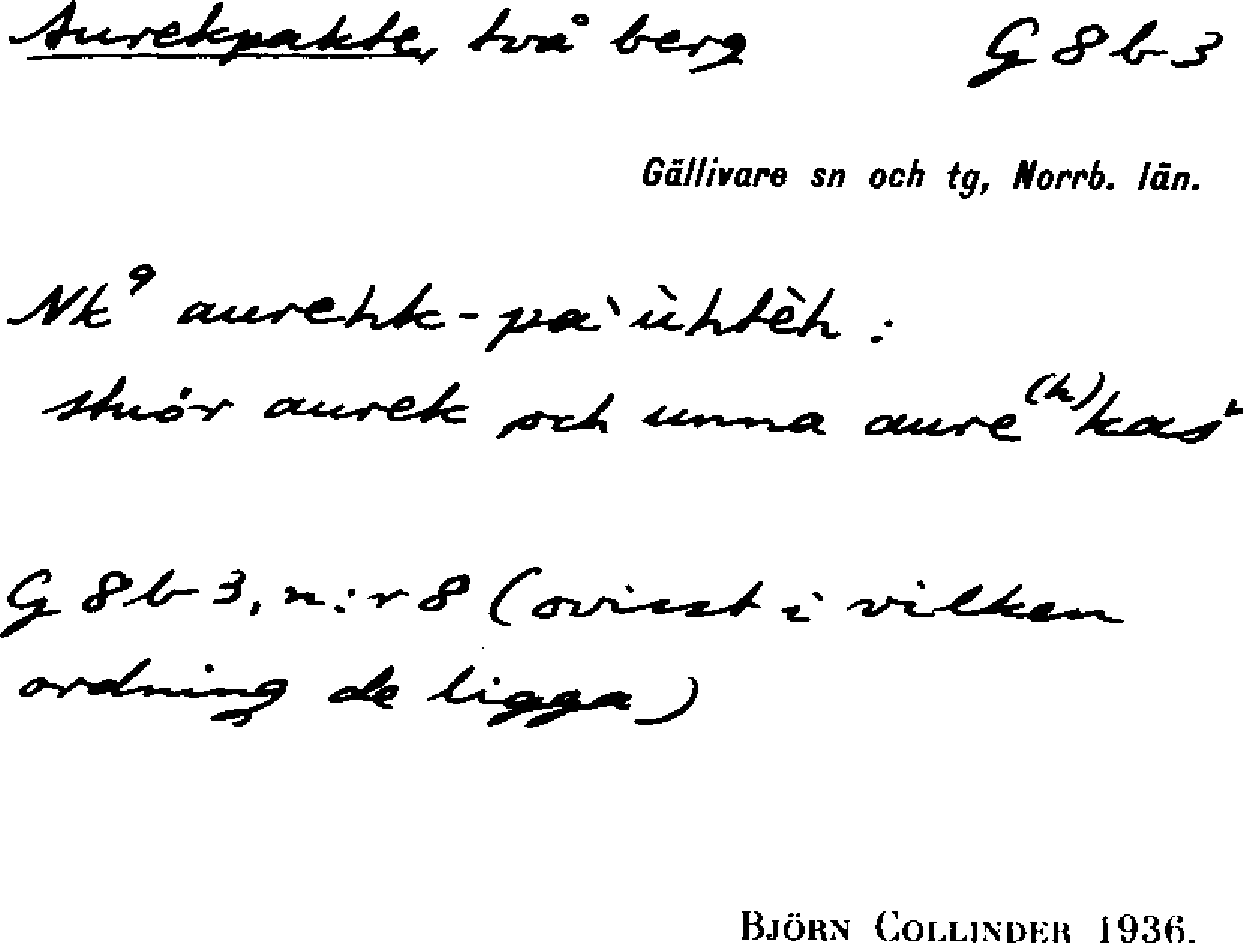 Aurekpakte, två berg G 8 b 3
Gällivare sn och tg, Norrb. län.
Nk⁹ aurehk-pa`ùhtèh :
stuór aurek och unna aure⁽ʰ⁾kaš
G 8 b 3, n:r 8 (ovisst i vilken
ordning de ligga)
BJÖRN COLLINDER 1936.